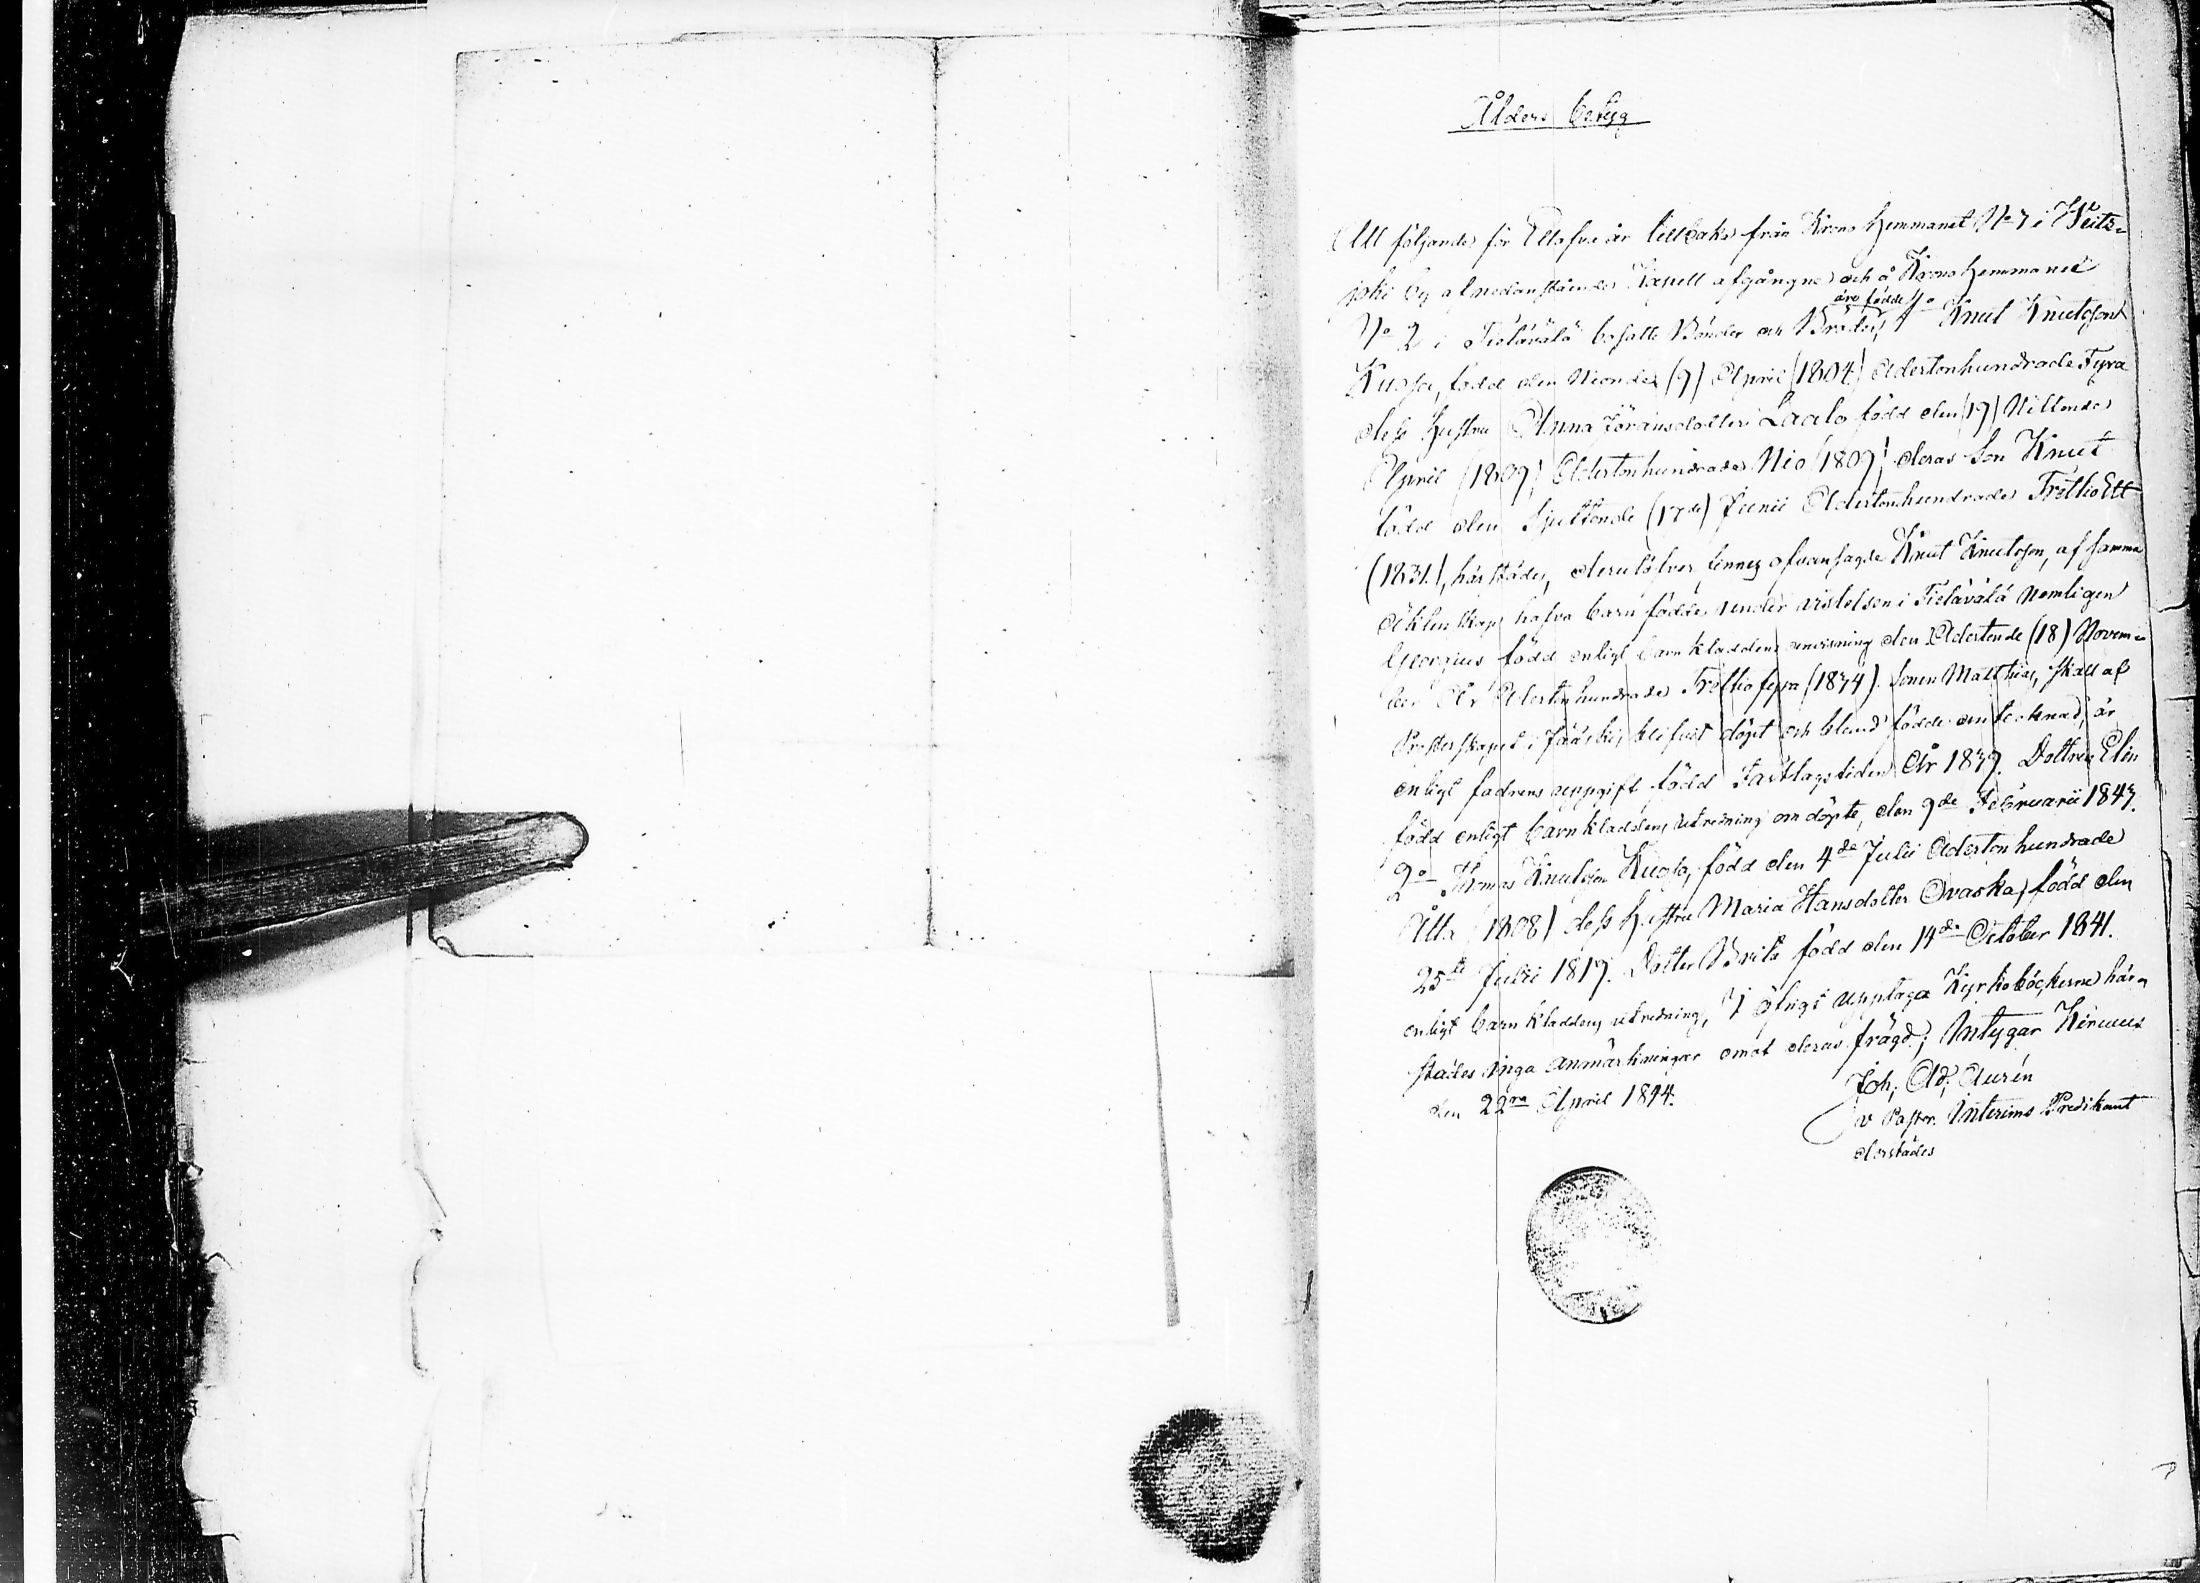 Ålders betyg
Att följande för Ellofva år tillbaka från Krono Hemmanet No 7 i Weits-
joki by af nedanstående Kapell afgångne och å Krono hemmanet
äro födde
No 2 i Tietävälä bosatte Bönder och Bröder, 1o Knut Knutsson
Kuosa, född den Nionde (9) April (1804) Adertonhundrade Fyra
dess hustru Anna Göransdotter Laalo född den (19) Nittonde
April (1809) Adertonhundrade Nio (1809), deras Son Knut
född den Sjuttonde (17de) Junii Adertonhundrade Trettio Ett
(1831), härstädes, derutöfver finnes ofvansagde Knut Knutsson, af samma
äktenskap hafva barn födde under vistelsen i Tietävälä nemligen
Georgius född enligt barnkladdens anvisning den Adertonde (18) Novem-
ber År Adertonhundrade Trettiofyra (1834). Sonen Matthias, skall af
Presterskapet i Jääskis blifvit döpt och bland födde antecknad, är
enligt fadrens uppgift född Fastlagstiden År 1839. Dottren Elin
född enligt barnkladdens utredning om döpte, den 9de Februarii 1843.
2o Thomas Knutsson Kuosa, född den 4de Julii Adertonhundrade
Åtta (1808) dess hustru Maria Hansdotter Ovaska, född den
25te Julii 1819. Dotter Brita född den 14de October 1841.
enligt barnkladdens utredning, I öfrigt upptaga Kyrkoböckerne här-
städes inga anmärkningar emot deras frägd; Intygar Kirvus
den 22ra April 1844.
Joh. Ad. Aurén
v Pastor. Interims Predikant
derstädes